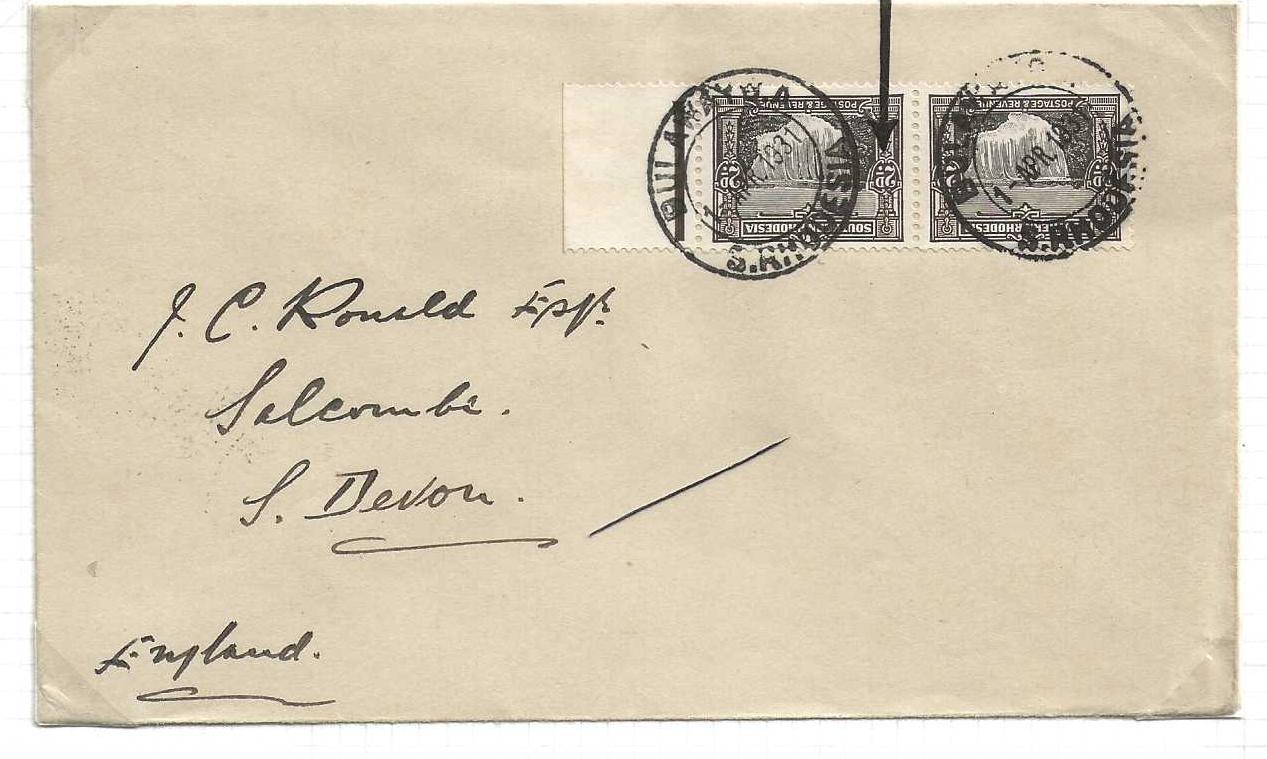 BULAWAYO
1-APR.1931
S.RHODESIA
POSTAGE & REVENUE
2D
SOUTHERN RHODESIA
BULAWAYO
1-APR.1931
S.RHODESIA
POSTAGE & REVENUE
2D
SOUTHERN RHODESIA
J. C. Ronald Esqr.
Salcombe.
S. Devon.
England.